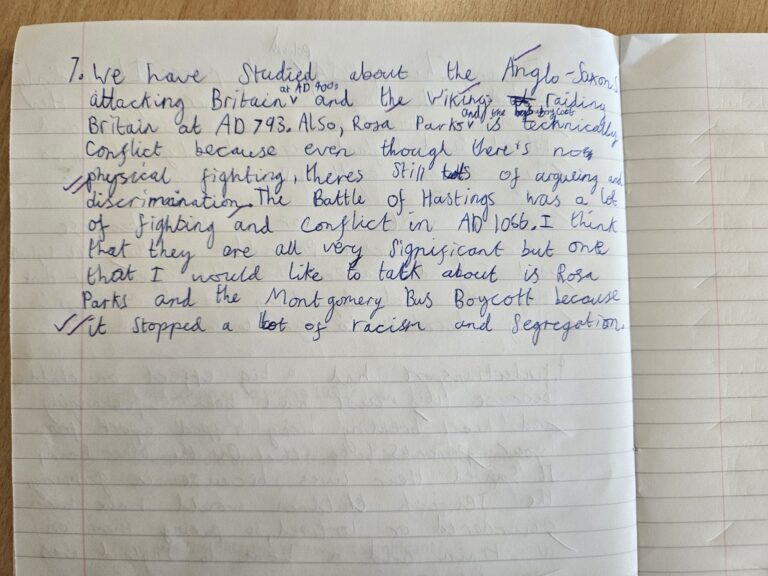 7. We have Studied about the Anglo-Saxons
attacking Britain at AD 400s and the Vikings raiding
Britain at AD 793. Also, Rosa Parks and the bus boycott is technically
Conflict because even though there's no
physical fighting, theres still lots of argueing and
discrimanation. The Battle of Hastings was a lot
of fighting and Conflict in AD 1066. I think
that they are all very Significant but one
that I would like to talk about is Rosa
Parks and the Montgomery Bus Boycott because
it stopped a lot of racism and Segregation.